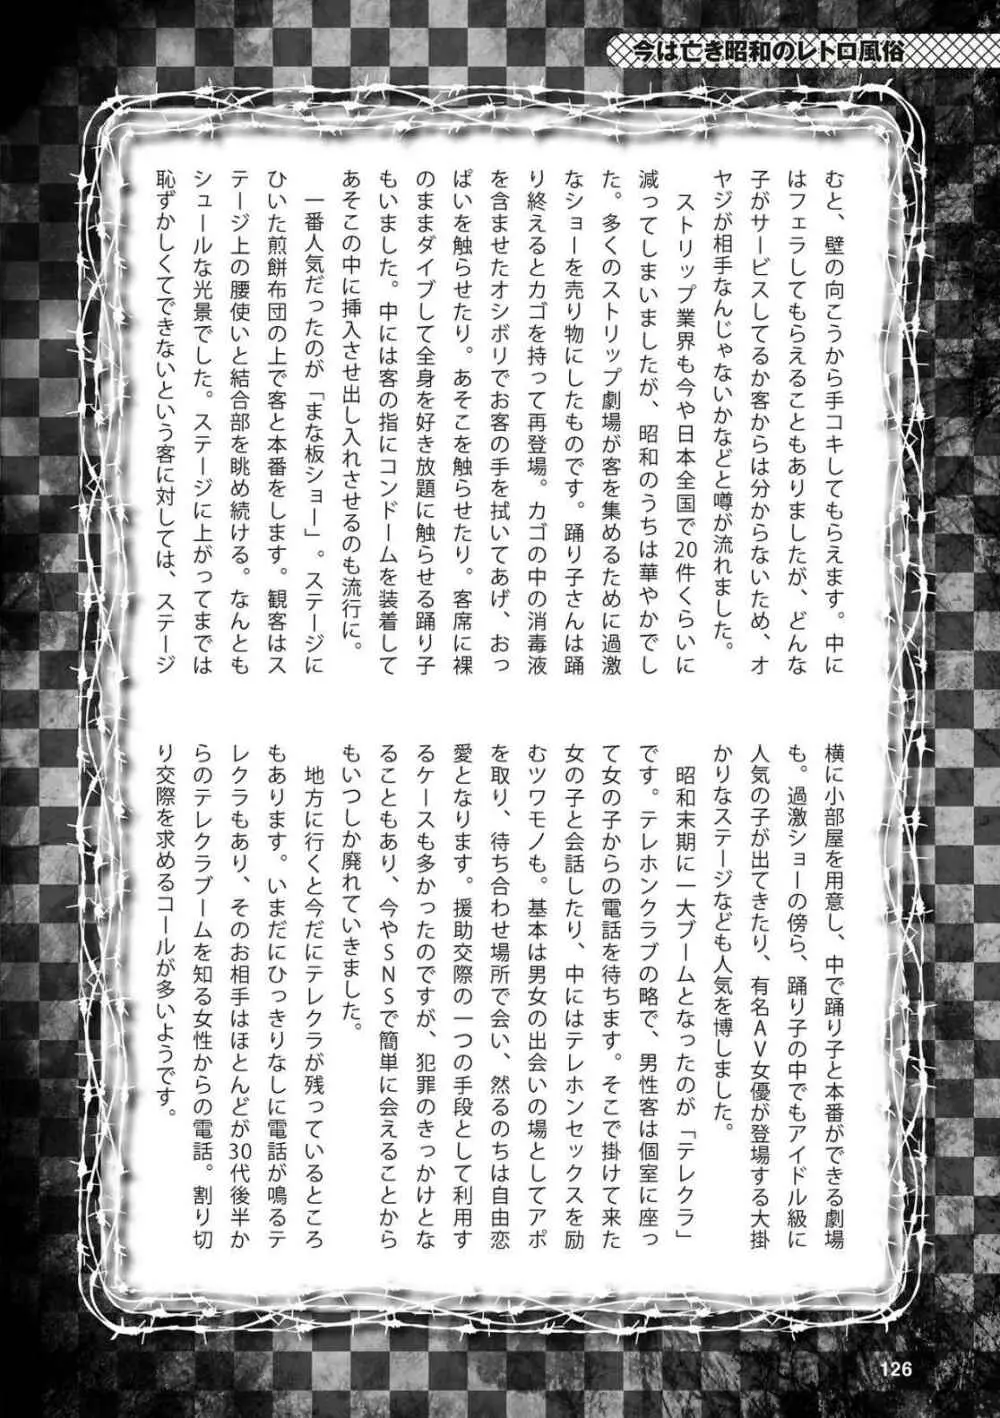 今は亡き昭和のレトロ風俗
むと、壁の向こうから手コキしてもらえます。中に
はフェラしてもらえることもありましたが、どんな
子がサービスしてるか客からは分からないため、オ
ヤジが相手なんじゃないかなどと噂が流れました。
ストリップ業界も今や日本全国で20件くらいに
減ってしまいましたが、昭和のうちは華やかでし
た。多くのストリップ劇場が客を集めるために過激
なショーを売り物にしたものです。踊り子さんは踊
り終えるとカゴを持って再登場。カゴの中の消毒液
を含ませたオシボリでお客の手を拭いてあげ、おっ
ぱいを触らせたり。あそこを触らせたり。客席に裸
のままダイブして全身を好き放題に触らせる踊り子
もいました。中には客の指にコンドームを装着して
あそこの中に挿入させ出し入れさせるのも流行に。
一番人気だったのが「まな板ショー」。ステージに
ひいた煎餅布団の上で客と本番をします。観客はス
テージ上の腰使いと結合部を眺め続ける。なんとも
シュールな光景でした。ステージに上がってまでは
恥ずかしくてできないという客に対しては、ステージ
横に小部屋を用意し、中で踊り子と本番ができる劇場
も。過激ショーの傍ら、踊り子の中でもアイドル級に
人気の子が出てきたり、有名AV女優が登場する大掛
かりなステージなども人気を博しました。
昭和末期に一大ブームとなったのが「テレクラ」
です。テレホンクラブの略で、男性客は個室に座っ
て女の子からの電話を待ちます。そこで掛けて来た
女の子と会話したり、中にはテレホンセックスを励
むツワモノも。基本は男女の出会いの場としてアポ
を取り、待ち合わせ場所で会い、然るのちは自由恋
愛となります。援助交際の一つの手段として利用す
るケースも多かったのですが、犯罪のきっかけとな
ることもあり、今やSNSで簡単に会えることから
もいつしか廃れていきました。
地方に行くと今だにテレクラが残っているところ
もあります。いまだにひっきりなしに電話が鳴るテ
レクラもあり、そのお相手はほとんどが30代後半か
らのテレクラブームを知る女性からの電話。割り切
り交際を求めるコールが多いようです。
126